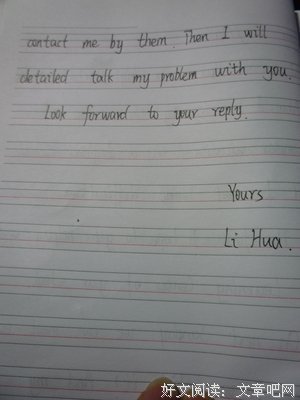 contact me by them. Then I will
detailed talk my problem with you.
Look forward to your reply.
Yours
Li Hua.
好文阅读：文章吧网